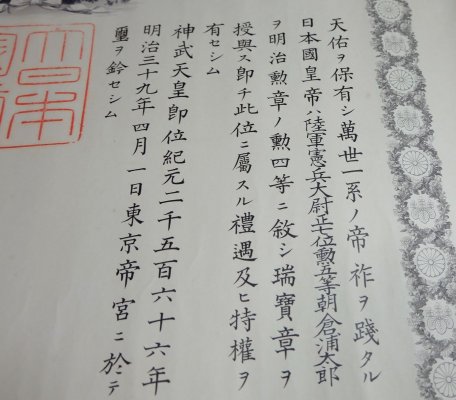 天佑ヲ保有シ萬世一系ノ帝祚ヲ踐タル
日本國皇帝ハ陸軍憲兵大尉正七位勲五等朝倉浦太郎
ヲ明治勲章ノ勲四等ニ敘シ瑞寶章ヲ
授與ス即チ此位ニ屬スル禮遇及ヒ特權ヲ
有セシム
神武天皇即位紀元二千五百六十六年
明治三十九年四月一日東京帝宮ニ於テ
璽ヲ鈐セシム
大日本